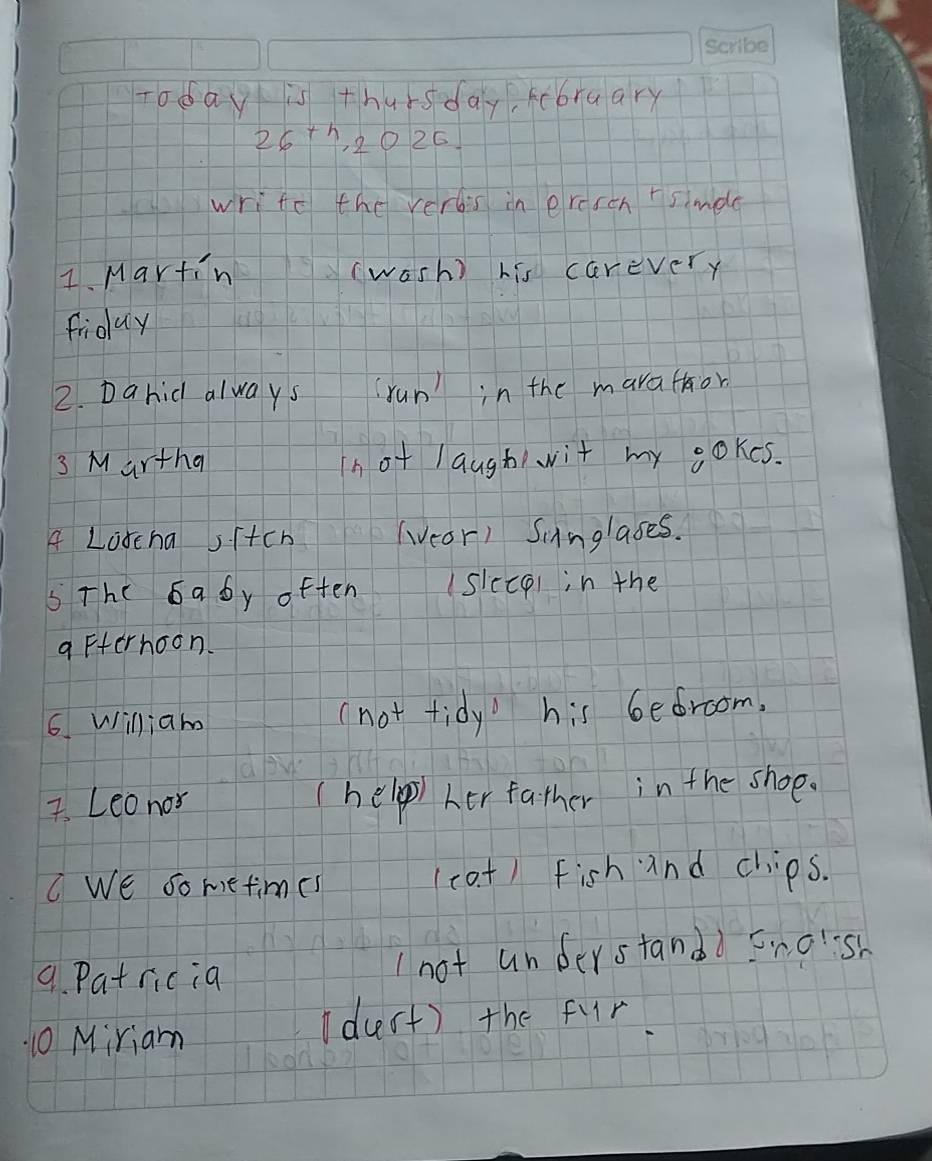 Scribe
Today is thursday, February
26th, 2026.
write the verbs in present simple
1. Martín (wash) his car every
friday
2. Daniel always (run) in the marathon
3 Martha (not laugh) wit my gokes.
4 Lorena often (wear) Sunglases.
5 The baby often (sleep) in the
afternoon.
6. William (not tidy) his bedroom.
7. Leonor (help) her father in the shop.
8 We sometimes (eat) fish and chips.
9. Patricia (not understand) English
10 Miriam (dust) the fur.